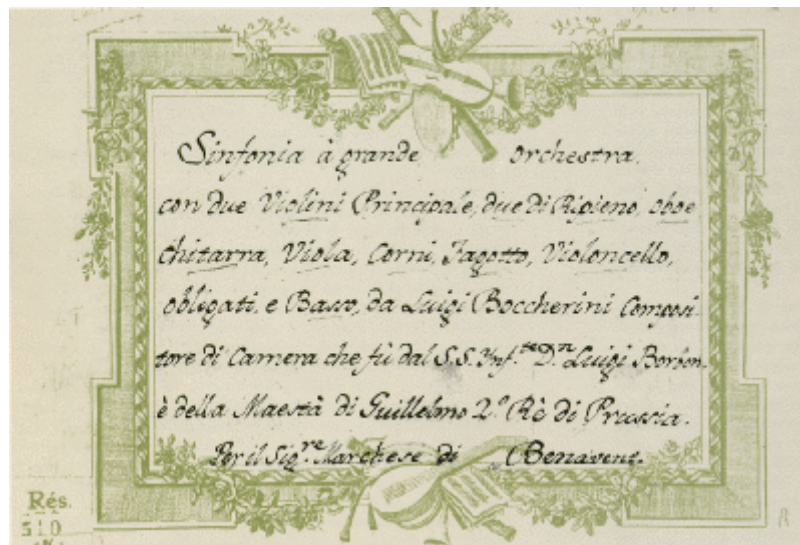 Sinfonia à grande orchestra.
con due Violini Principale, due di Ripieno, oboe
chitarra, Viola, Corni, Fagotto, Violoncello,
obligati, e Basso, da Luigi Boccherini Composi-
tore di Camera che fù dal S.S. Ynf.te D.n Luigi Borbon.
è della Maestà di Guillelmo 2.º Rè di Prussia.
Per il Sig.re Marchese di Benavent.
Rés.
510